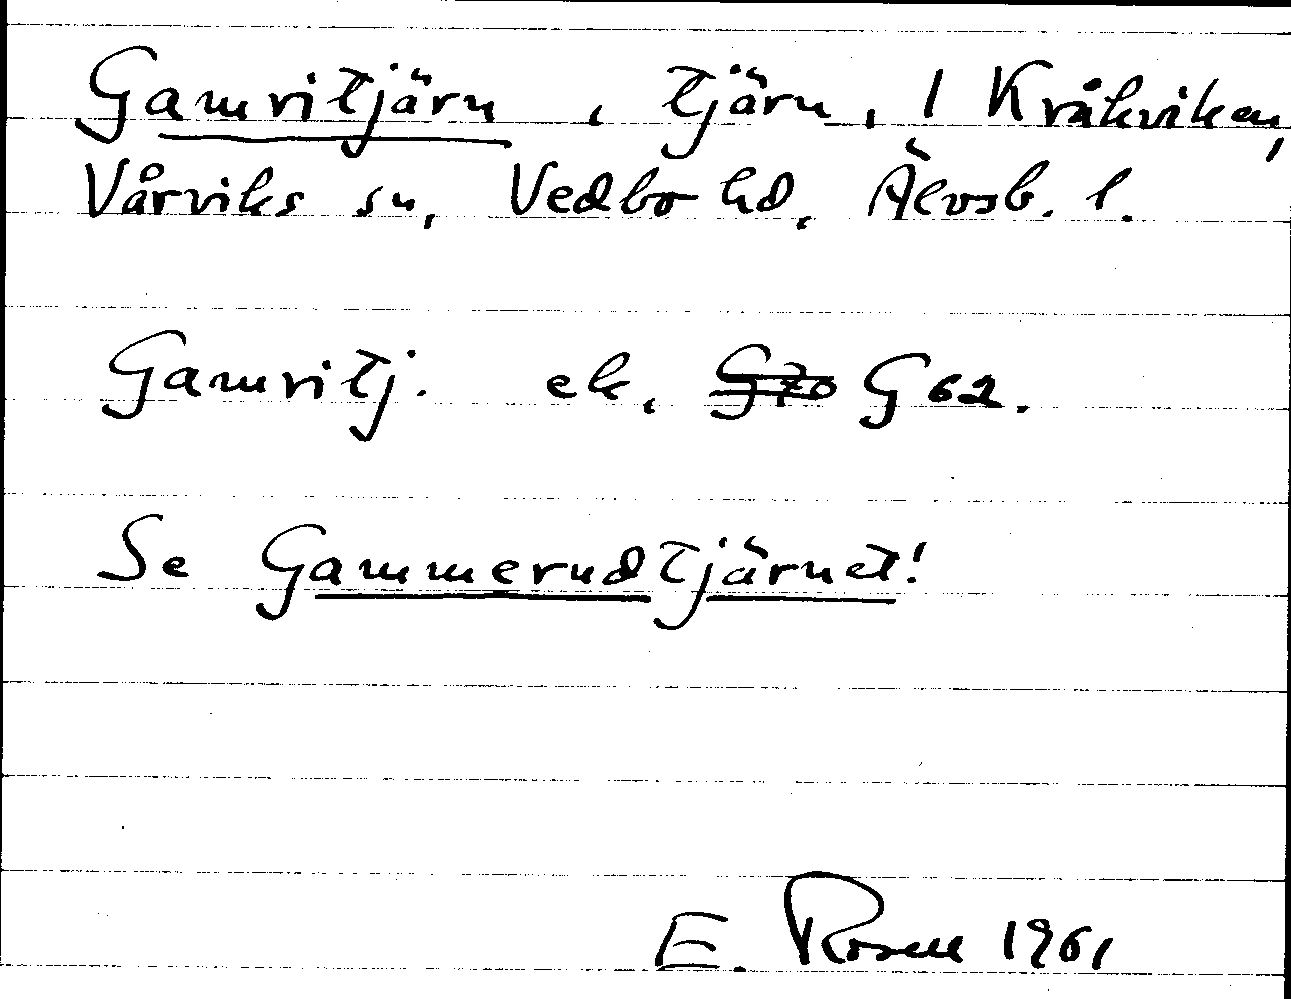 Gamritjärn, tjärn, 1 Kråkviken,
Vårviks sn, Vedbo hd, Älvsb. l.
Gamritj. ek, G70 G62.
Se Gammerudtjärnet!
E. Rosell 1961